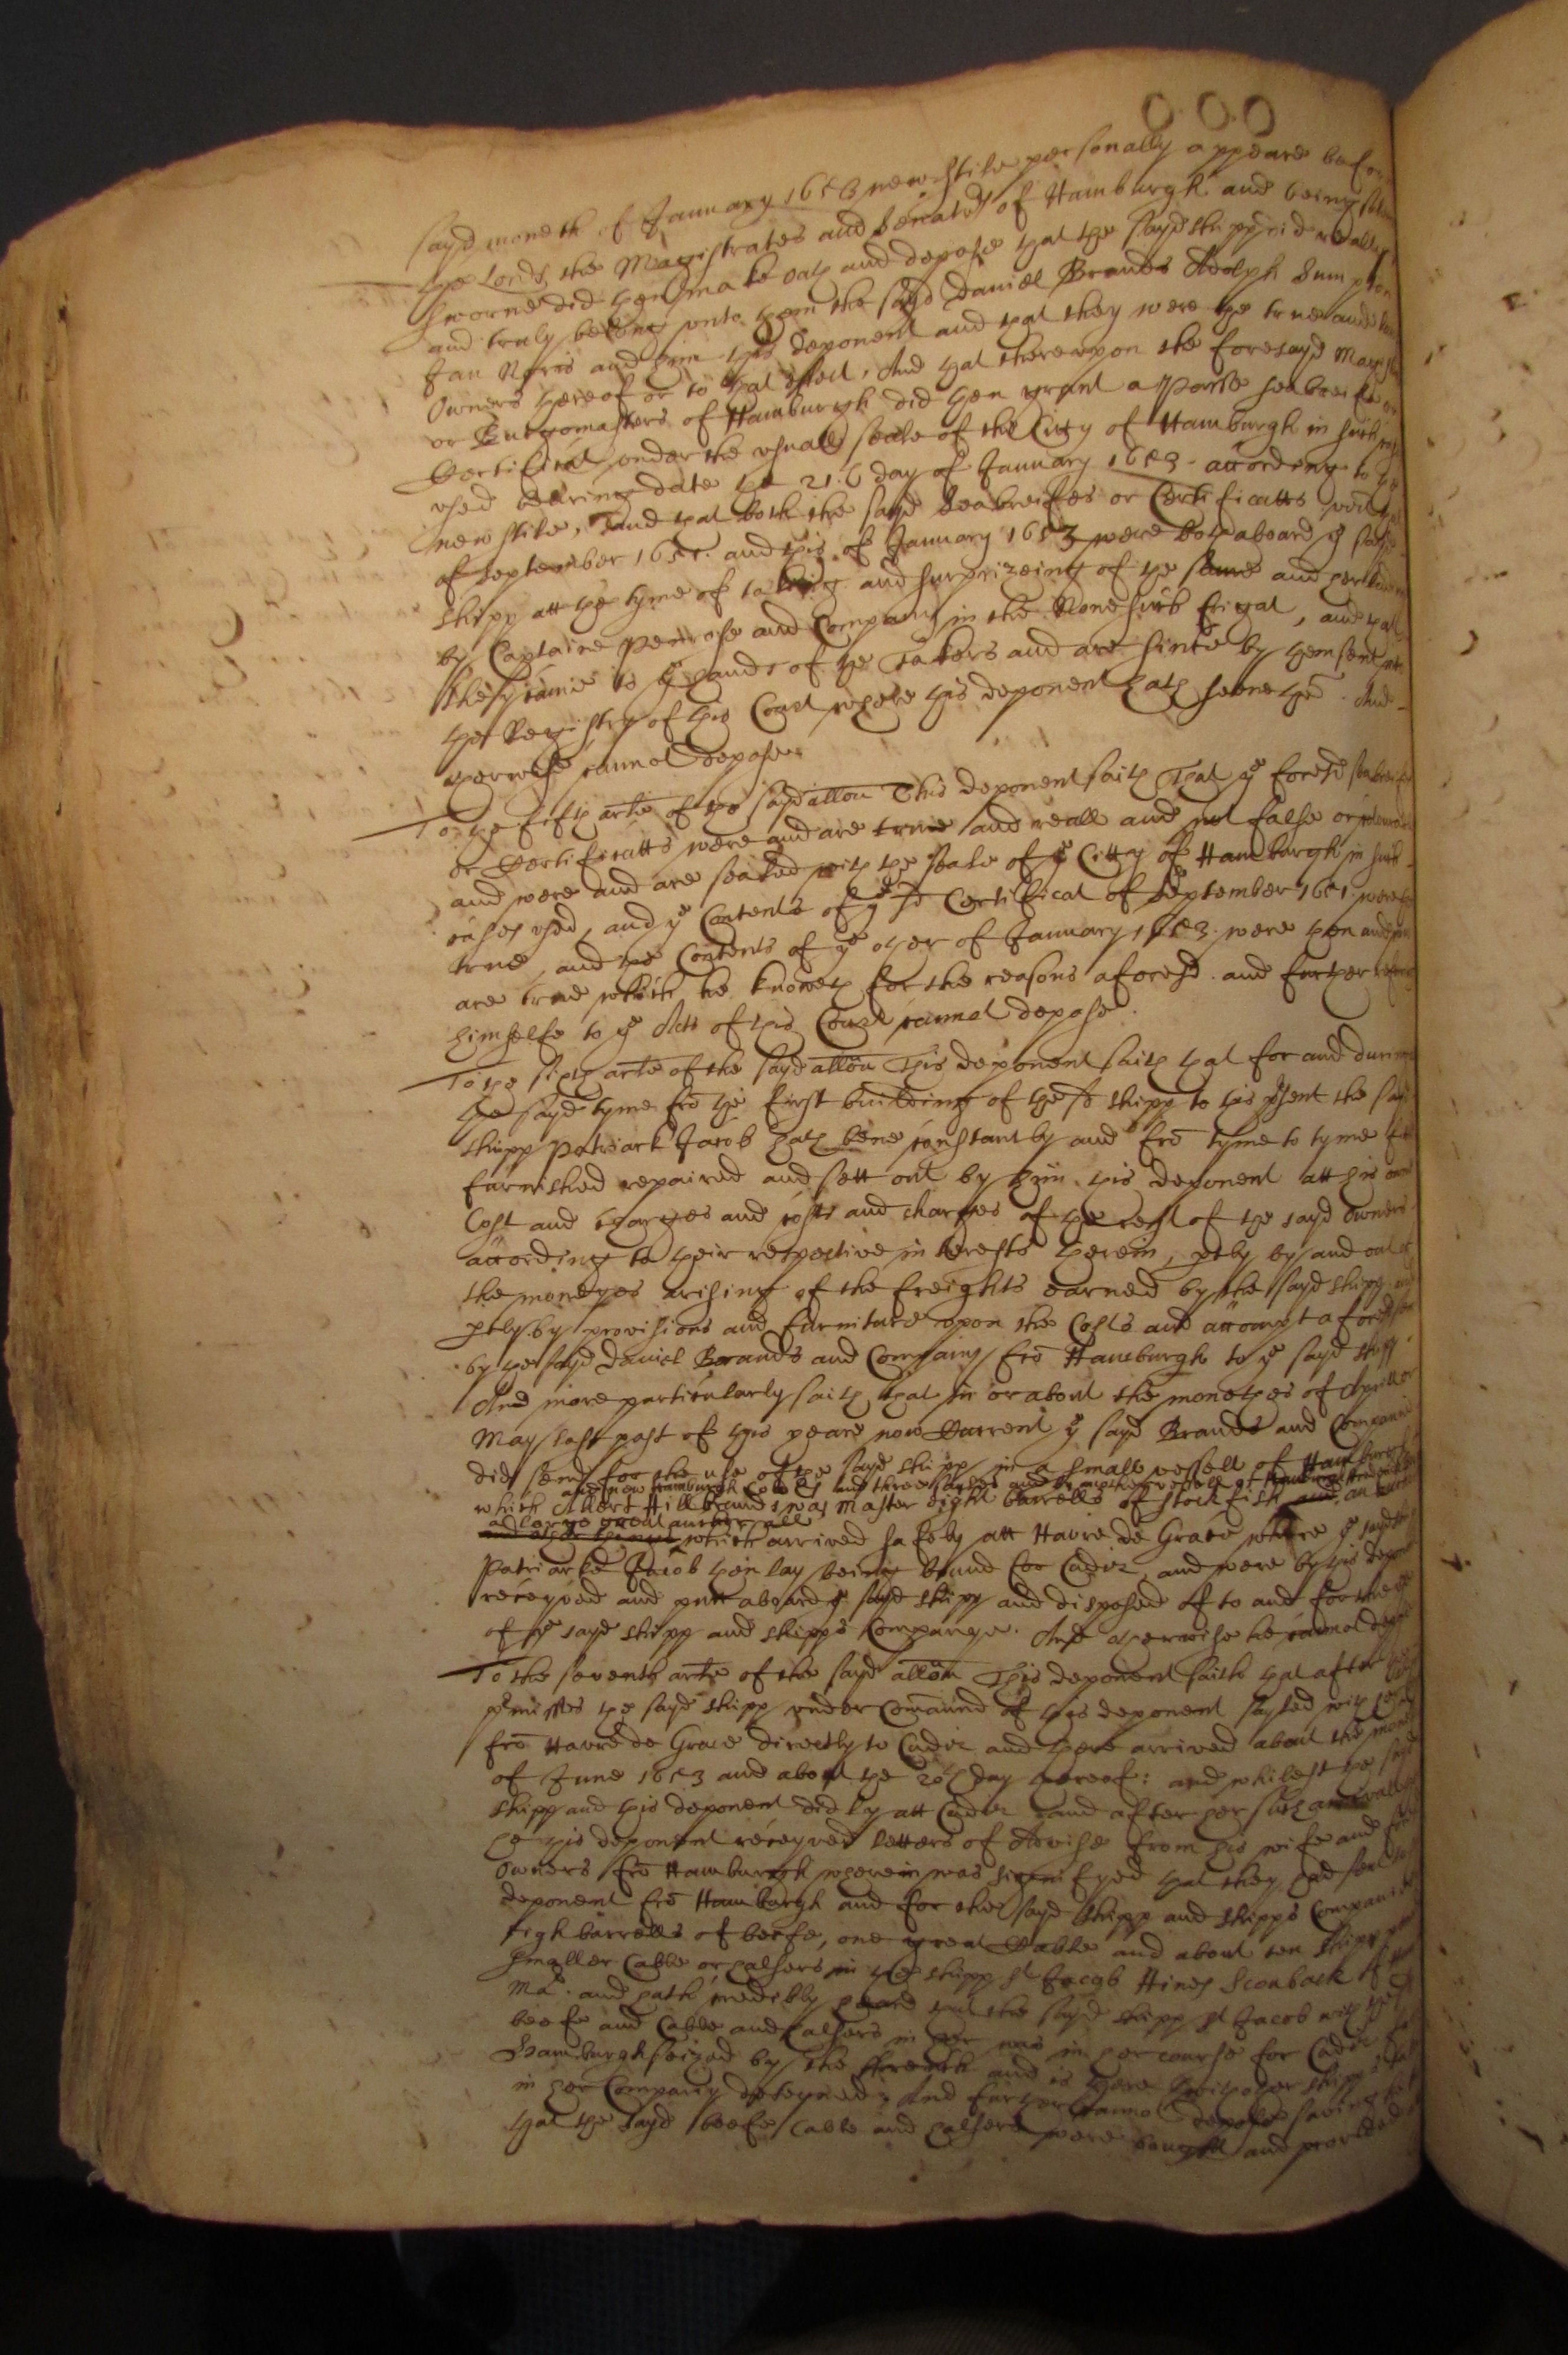 sayd moneth of January 1653 new stile personally appeare before
the Lords the Magistrates and Senators of Hamburgh and being
sworne did then make oath and depose that the sayd shipp did really
and truly belong unto them the sayd Daniel Brandes Adolph
Jan and him this deponent and that they were the true and
Owners thereof or to that effect, And that thereupon the foresayd
or Burgomasters of Hamburgh did then grant a Passe seabreife or
Certificat under the usuall seale of the Citty of Hamburgh in such
used bearing date the 21.th day of January 1653 according to the
new stile, and that both the sayd Seabreifes or Certificatts
of September 1651. and this of January 1653 were both aboard the sayd
shipp att the tyme of taking and surprizeing of the same and her
by Captaine Penrose and Company in the Nonesuch frigat, and that
they came to the hands of the Takers and are since by them sent into
the Registry of this Court where this deponent hath seene them. And
otherwise cannot depose.
To the fifth arle of the sayd allon This deponent saith That the foresd
or Certificatts were and are true and reall and not false or
and were and are sealed with the seale of the Citty of Hamburgh in such
cases used, and the Contents of the sd Certificat of September 1651. were
true, and the Contents of the other of January 1653. were then and
are true which he knoweth for the reasons aforesd. and further
himselfe to the Acts of this Court cannot depose.
To the sixth arle of the sayd allon This deponent saith that for and during
the sayd tyme fro the first building of the sd shipp to this psent the sayd
shipp Patriark Jacob hath bene constantly and fro tyme to tyme
furnished repaired and sett out by him this deponent att his owne
Cost and charges and costs and charges of the rest of the sayd owners
according to their respective interests therein, ptly by and out of
the moneyes arising of the freights earned by the sayd shipp and
ptly by provisions and furniture upon the Costs and accompt aforesd
by the sayd Daniel Brandes and Company fro Hamburgh to the sayd shipp
And more particularly saith that in or about the monethes of Aprill or
May last past of this yeare now Currant the sayd Brandes and Companie
did send for the use of the sayd shipp in a small vessell of Hamburgh
and three
which Albert Hillbrands was Master eight barrells of stock fish
a large great anchor all
which arrived safely att Havre de Grace where the sayd
Patriarke Jacob then lay being bound for Cadiz, and were by this
receyved and putt aboard the sayd shipp and disposed of to and for the use
of the sayd shipp and shipps Companye. And otherwise he cannot depose
To the seventh arle of the sayd allon This deponent saith that after
pmisses the sayd shipp under Comaund of this deponent sayled
fro Havre de Grace directly to Cadiz and there arrived about the moneth
of June 1653 and about the 20th day thereof: and whilest the sayd
shipp and this deponent did ly att Cadiz and after her such arrivall
he this deponent receyved letters of Advise from his wife and
Owners fro Hamburgh wherein was signifyed that they had sent
deponent fro Hamburgh and for the sayd shipp and shipps Companie
eigh barrells of beefe, one great Cable and about ten
smaller Cable or halsers in the shipp St Jacob Hines Sconback
Mr. and hath credibly heard that the sayd shipp St Jacob with the
beefe and Cable and halsers in her was in her course for Cadiz
Hamburgh seized by the ffrench and is there with other shipps
in her Company deteyned. And further cannot depose saving
that the sayd beefe Cable and halsers were bought and provided